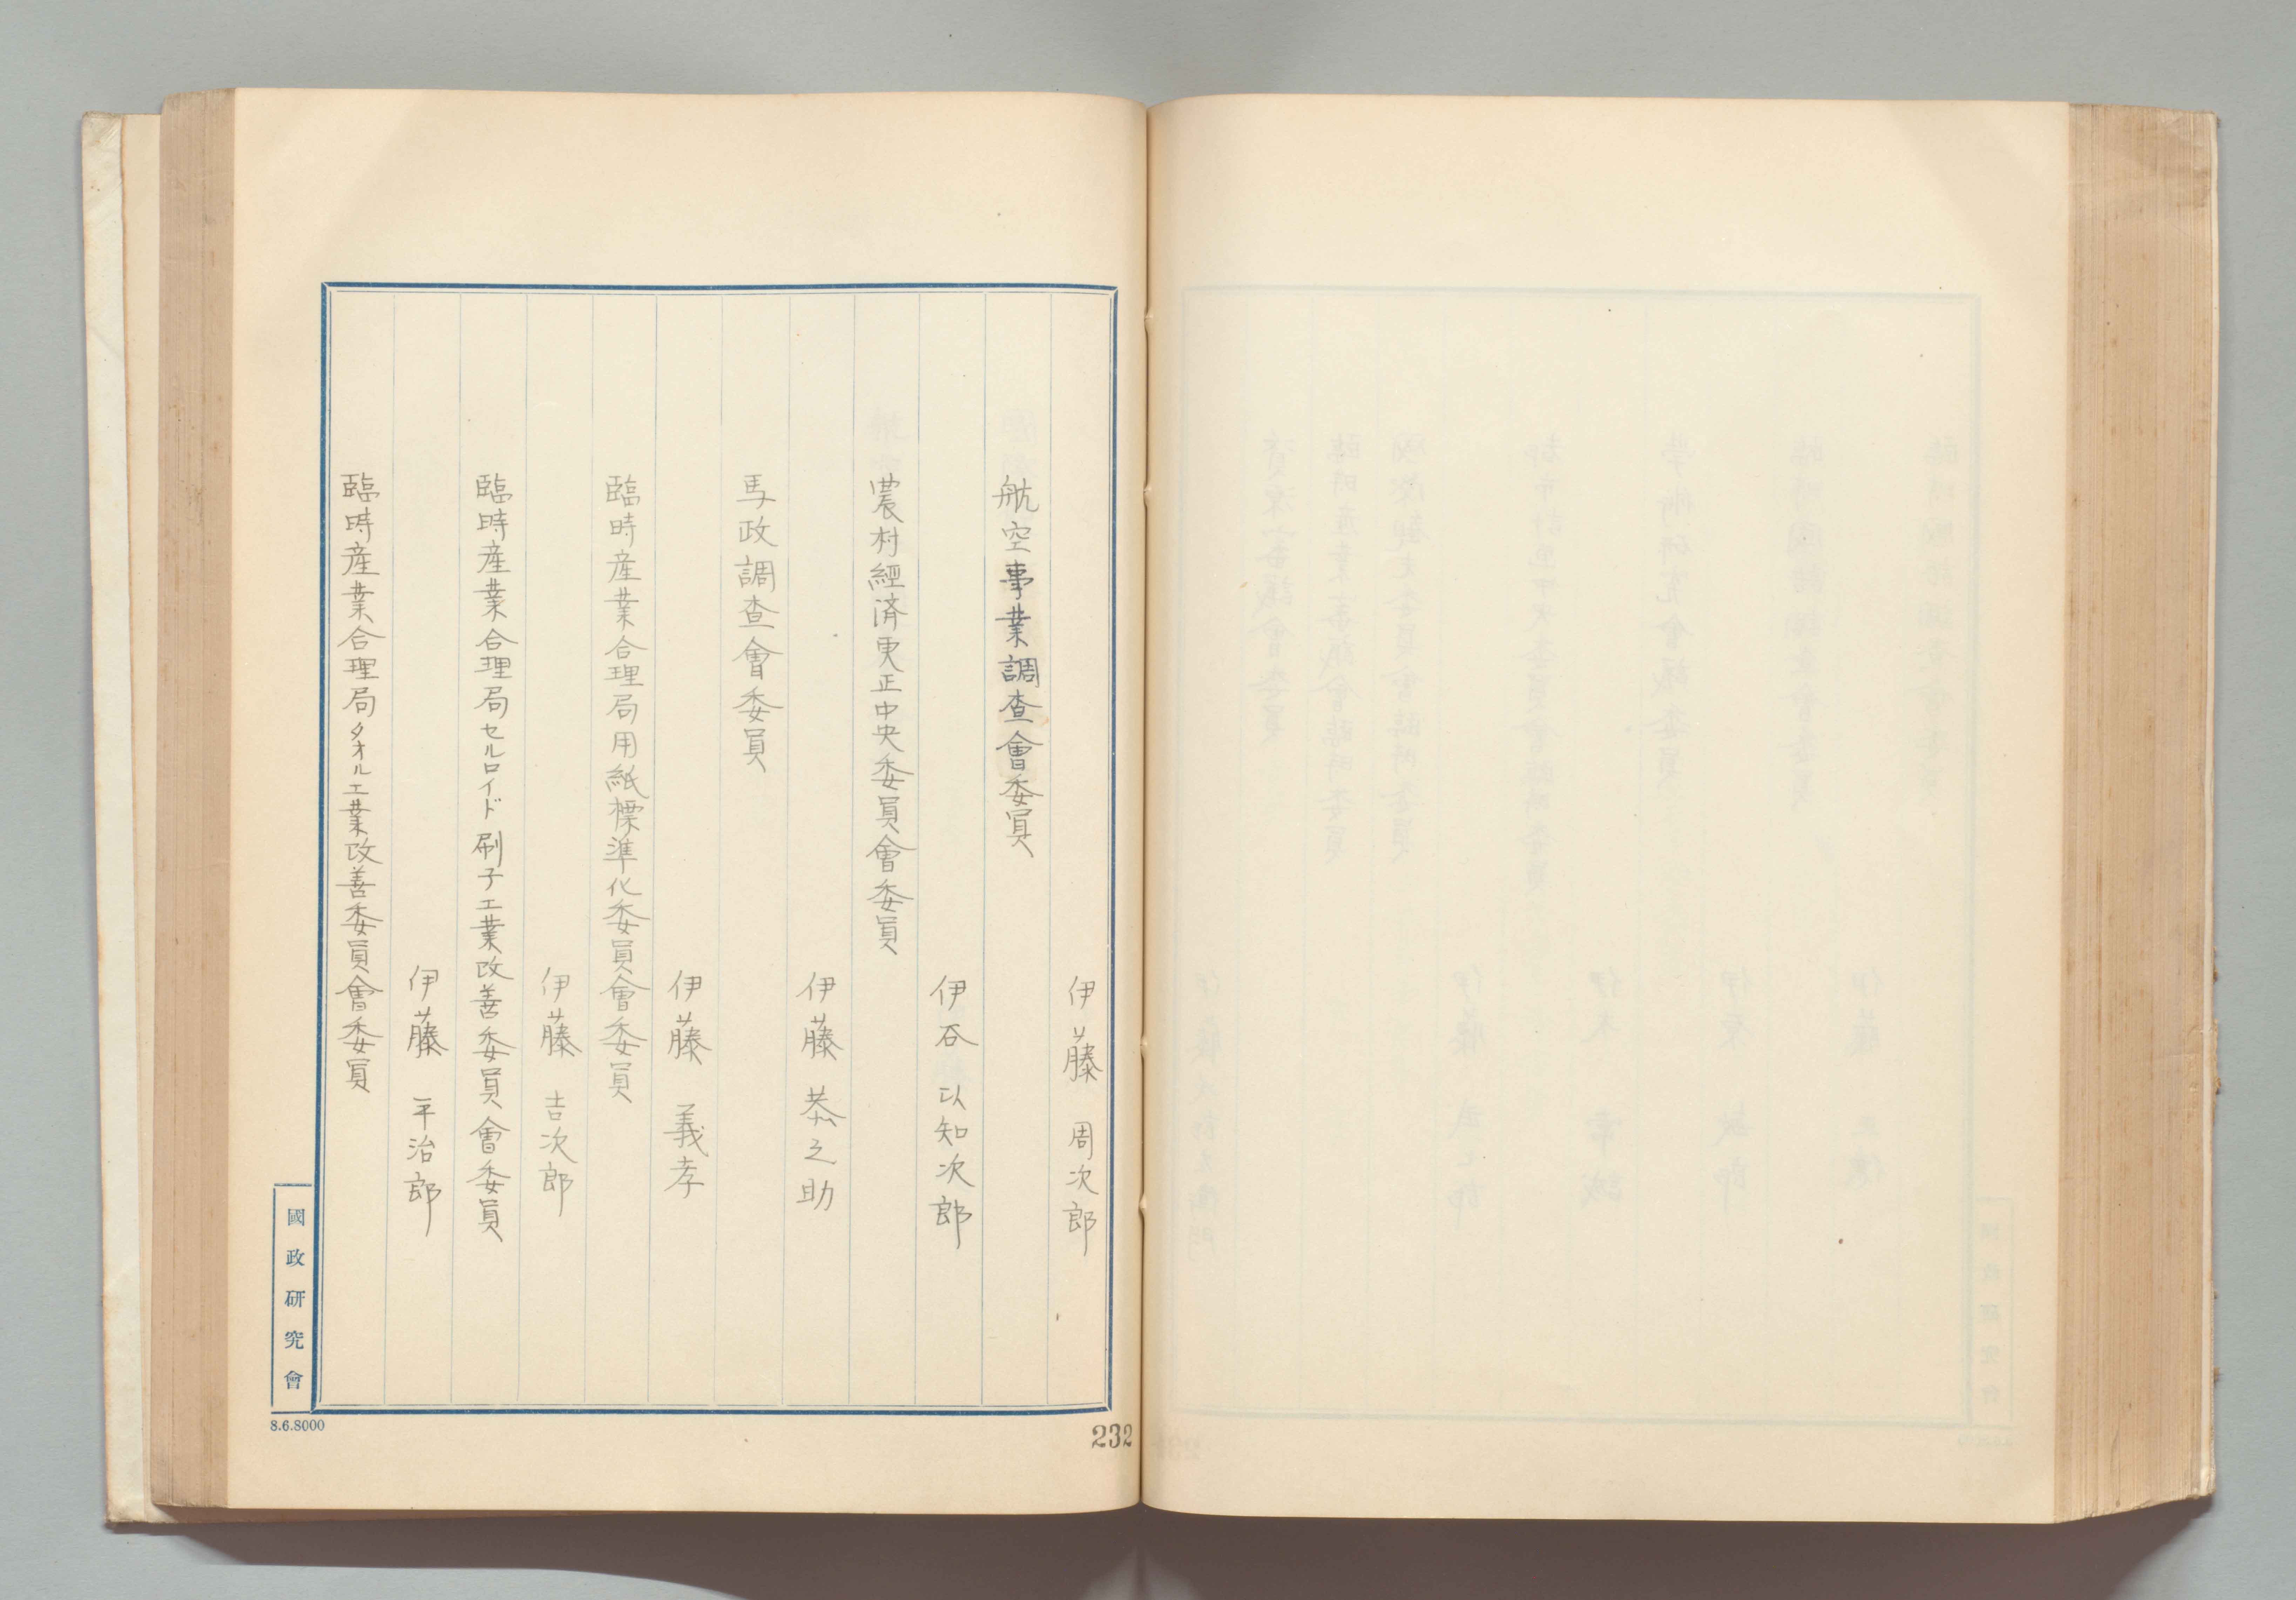 伊藤周次郎
航空事業調査會委員
伊谷以知次郎
農村經済更正中央委員會委員
伊藤恭之助
馬政調査會委員
伊藤義孝
臨時産業合理局用紙標準化委員會委員
伊藤吉次郎
臨時産業合理局セルロイド刷子工業改善委員會委員
伊藤平治郎
臨時産業合理局タオル工業改善委員會委員
國政研究會
8.6.8000
232